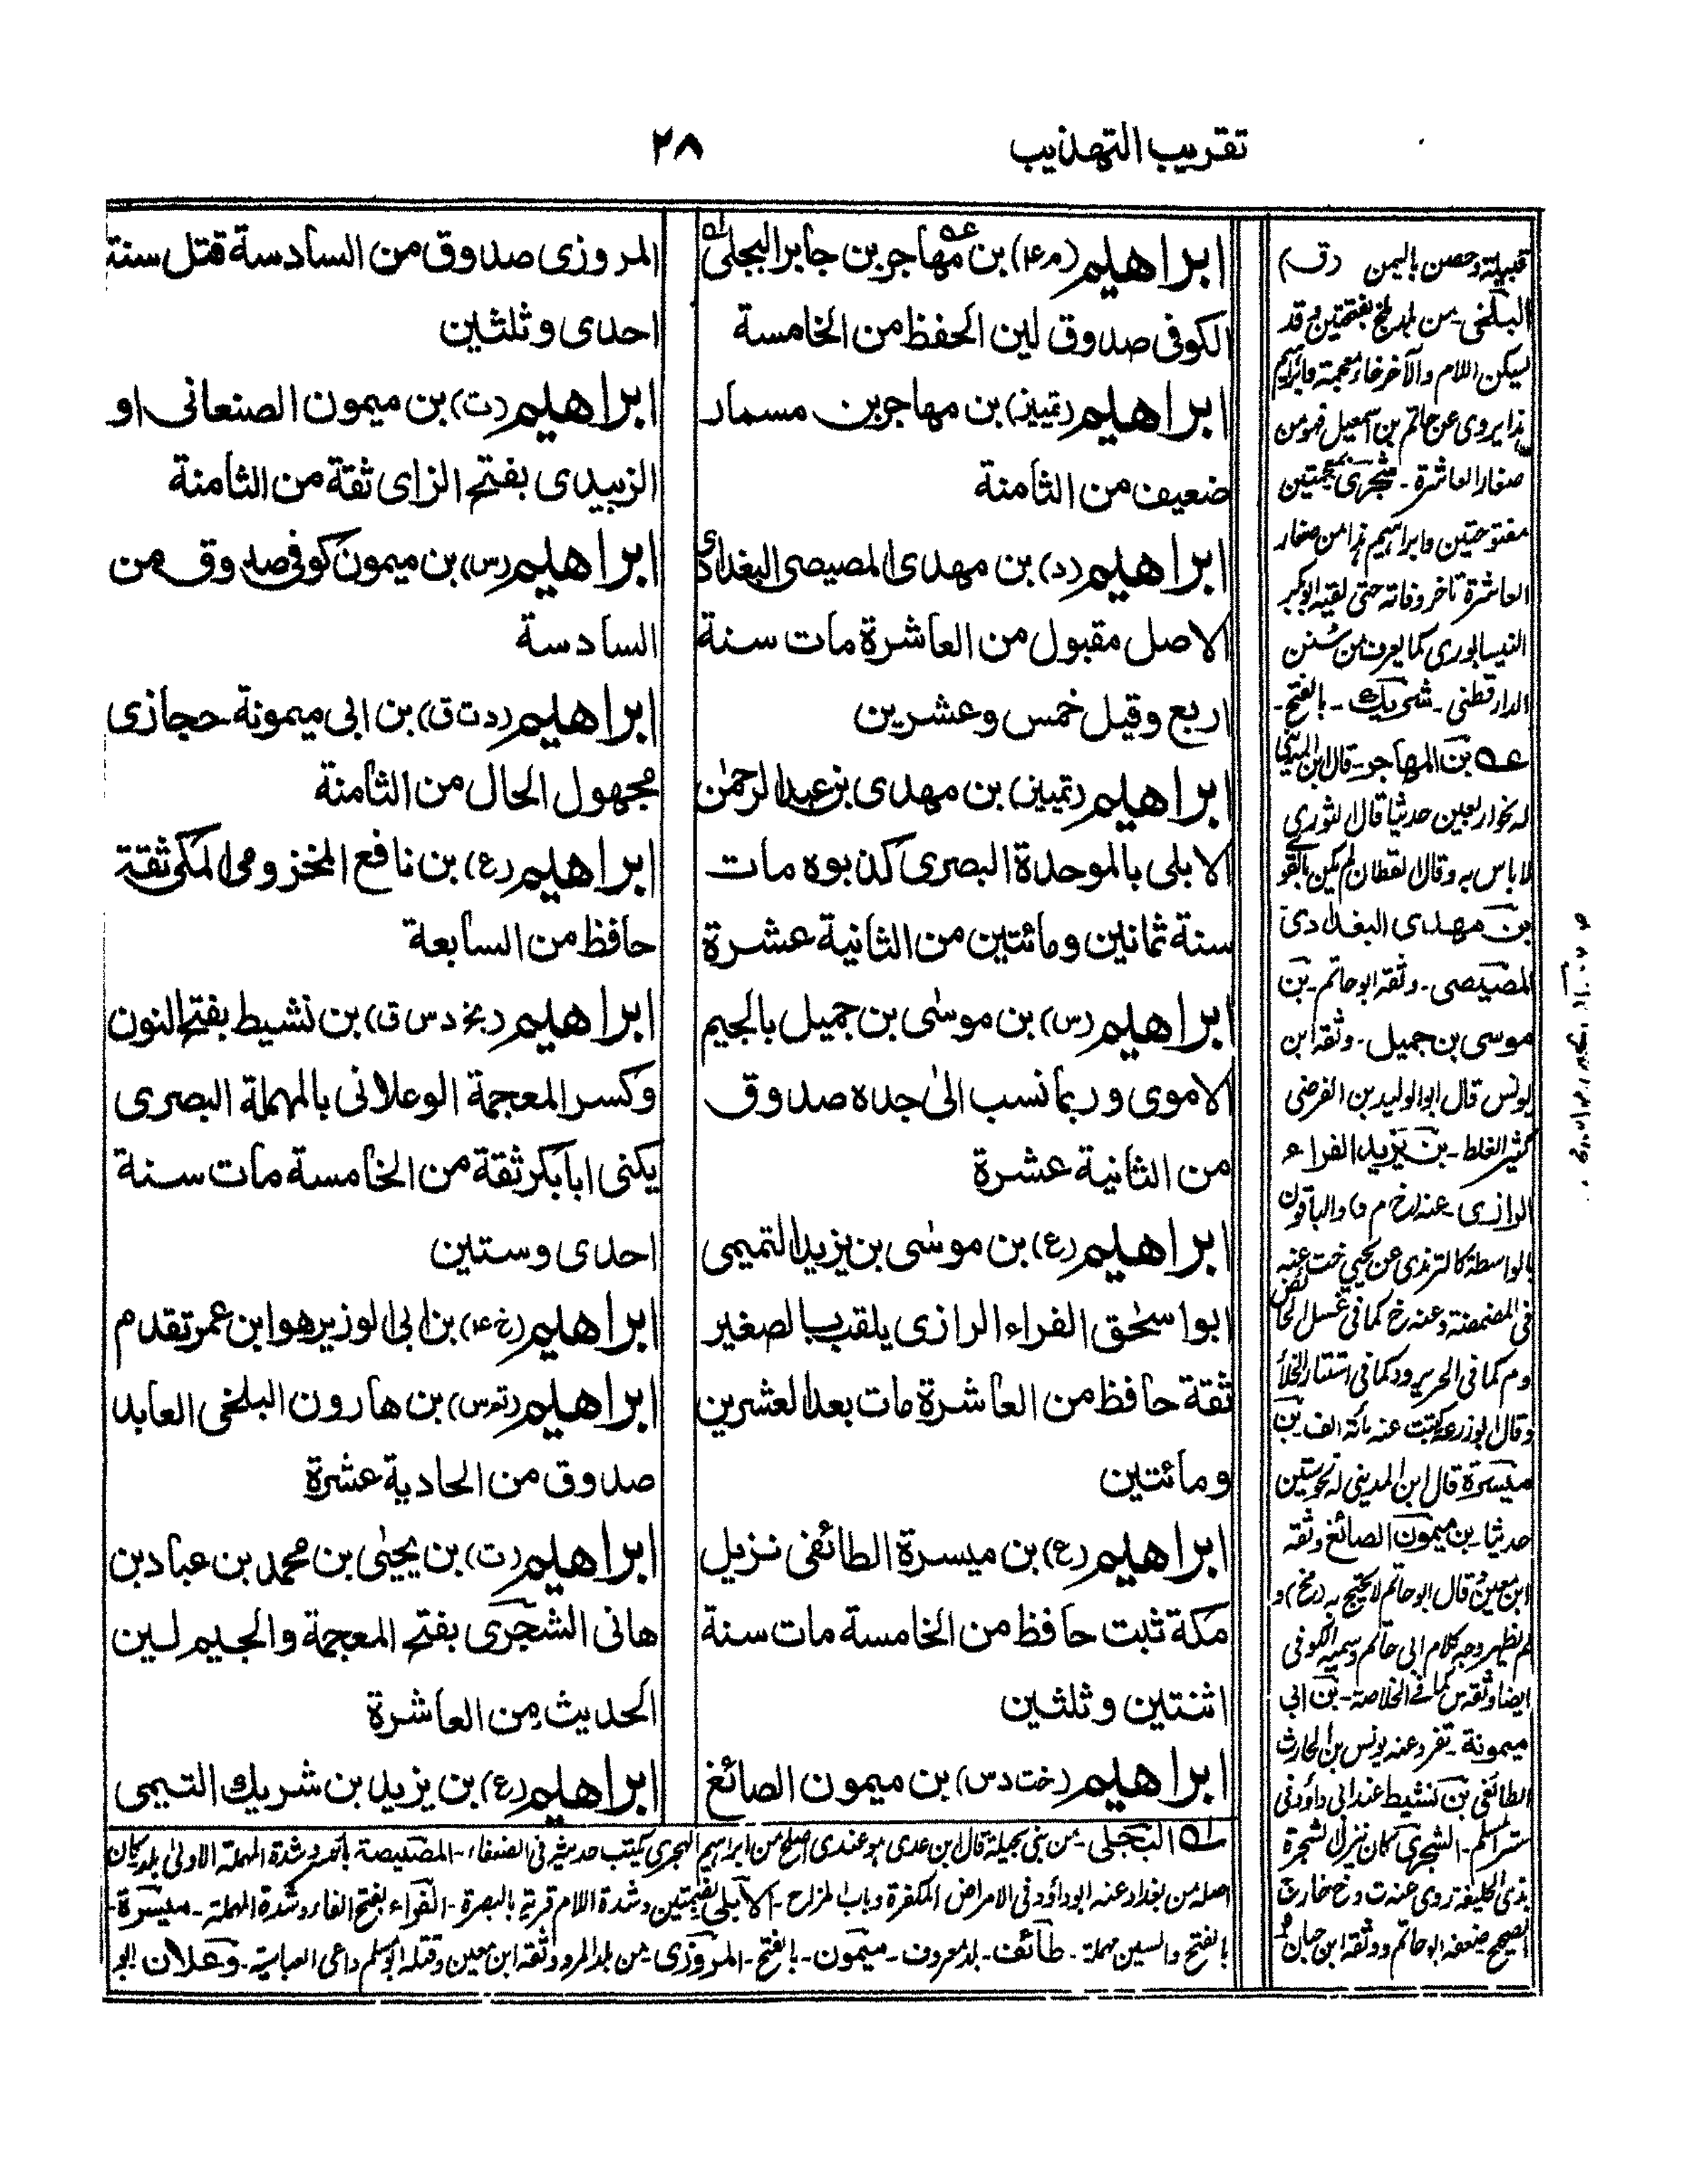 تقريب التهذيب
٢٨
ابراهيم (م ع٤) بن مهاجر بن جابر البجلى
الكوفى صدوق لين الحفظ من الخامسة
ابراهيم (تمييز) بن مهاجر بن مسمار
ضعيف من الثامنة
ابراهيم (د) بن مهدى المصيصى البغدادى
الاصل مقبول من العاشرة مات سنة
اربع وقيل خمس وعشرين
ابراهيم (تمييز) بن مهدى بن عبد الرحمٰن
الابلى بالموحدة البصرى كذبوه مات
سنة ثمانين ومائتين من الثانية عشرة
ابراهيم (س) بن موسٰى بن جميل بالجيم
الاموى وربما نسب الىٰ جده صدوق
من الثانية عشرة
ابراهيم (ع) بن موسٰى بن يزيد التميمى
ابو اسحٰق الفراء الرازى يلقب بالصغير
ثقة حافظ من العاشرة مات بعد العشرين
ومائتين
ابراهيم (ع) بن ميسرة الطائفى نزيل
مكة ثبت حافظ من الخامسة مات سنة
اثنتين وثلثين
ابراهيم (خت د س) بن ميمون الصائغ
المروزى صدوق من السادسة قتل سنة
احدى وثلثين
ابراهيم (ت) بن ميمون الصنعانى او
الزبيدى بفتح الزاى ثقة من الثامنة
ابراهيم (س) بن ميمون كوفى صدوق من
السادسة
ابراهيم (د ت ق) بن ابى ميمونة حجازى
مجهول الحال من الثامنة
ابراهيم (ع) بن نافع المخزومى المكى ثقة
حافظ من السابعة
ابراهيم (بخ د س ق) بن نشيط بفتح النون
وكسر المعجمة الوعلانى بالمهملة البصرى
يكنى ابا بكر ثقة من الخامسة مات سنة
احدى وستين
ابراهيم (خ ع٤) بن ابى الوزير هو ابن عمر تقدم
ابراهيم (ت س) بن هارون البلخى العابد
صدوق من الحادية عشرة
ابراهيم (ت) بن يحيٰى بن محمد بن عباد بن
هانى الشجرى بفتح المعجمة والجيم لين
الحديث من العاشرة
ابراهيم (ع) بن يزيد بن شريك التيمى
قبيلة وحصن باليمن (ق)
البلخى - من بلد بلخ بفتحتين وقد
يسكن اللام والآخر خاء معجمة وابراهيم
هذا يروى عن حاتم بن اسمعيل فهو من
صغار العاشرة - شجرى بمعجمتين
مفتوحتين وابراهيم هذا من صغار
العاشرة تاخر وفاته حتى لقيه ابو بكر
النيسابورى كما يعرف من سنن
الدارقطنى - شريك - بالفتح -
بن المهاجر - قال ابن المدينى
له نحو اربعين حديثا قال الثورى
لا باس به وقال القطان لم يكن بالقوى
بن مهدى البغدادى
المصيصى - وثقه ابو حاتم - بن
موسى بن جميل - وثقه ابن
يونس قال ابو الوليد بن الفرضى
كثير الغلط - بن يزيد الفراء
الرازى - عنه (خ م د) والباقون
بالواسطة كالترمذى عن يحيى خت عنه
فى المضمضة وعنه خ كما فى غسل الحائض
وم كما فى الحرير ود كما فى استتار الخلأ
وقال ابو زرعة كتبت عنه مائة الف بن
ميسرة قال ابن المدينى له نحو ستين
حديثا - بن ميمون الصائغ وثقه
ابن معين قال ابو حاتم لا يحتج به
لم يظهر وجه كلام ابى حاتم وسميه الكوفى
ايضا وثقه س كما فى الخلاصة - بن ابى
ميمونة - تفرد عنه يونس بن الحارث
الطائفى بن نشيط عند ابى داؤد فى
ستر المسلم - الشجرى كان ينزل الشجرة
بذى الحليفة روى عنه ت وخ خارج
الصحيح ضعفه ابو حاتم ووثقه ابن حبان
البجلى - من بنى بجيلة قال ابن عدى هو عندى اصلح من ابراهيم الهجرى يكتب حديثه فى الضعفاء - المصيصة بالكسر وشدة المهملة الاولى بلد كان
اصله من بغداد عنه ابو داؤد فى الامراض المكفرة وباب المزاح - الابلى بضمتين وشدة اللام قرية بالبصرة - الفراء بفتح الفاء وشدة المهملة - ميسرة -
بالفتح والسين مهملة - طائف - بلد معروف - ميمون - بالفتح - المروزى - من بلد المرو وثقه ابن معين وقتله ابو مسلم داعى العباسية - وعلان ابو